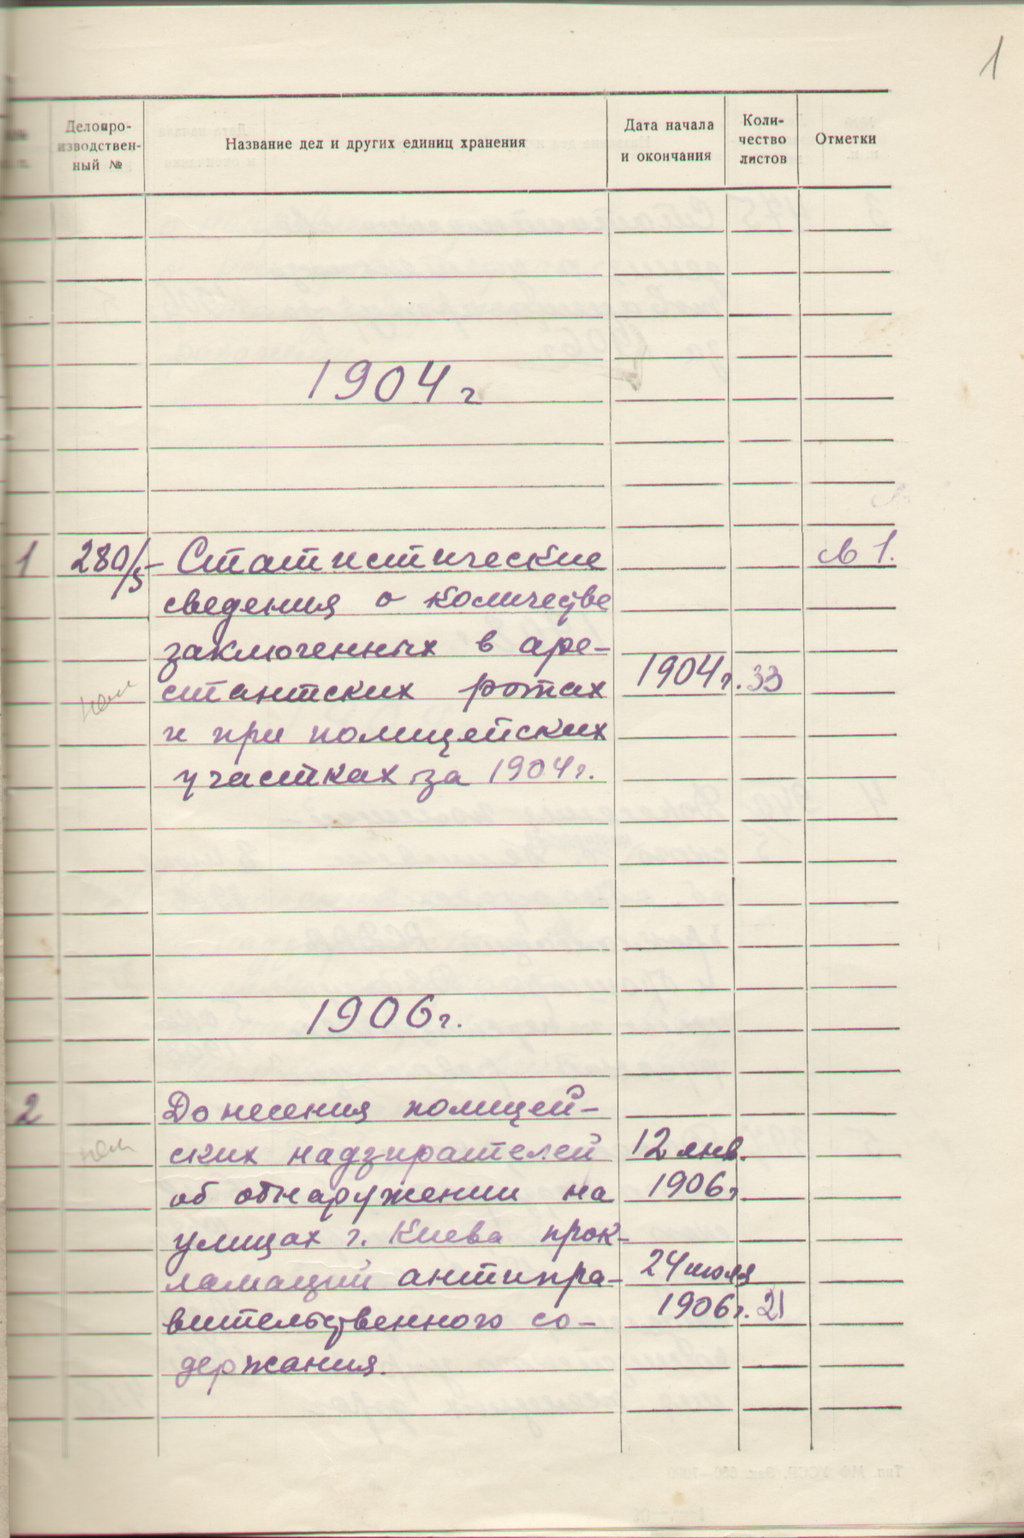 1
Делопро-
изводствен-
ный №
Название дел и других единиц хранения
Дата начала
и окончания
Коли-
чество
листов
Отметки
1904 г
1 280/5 - Статистические
сведения о количестве
заключенных в аре-
стантских ротах 1904 г. 33
и при полицейских
участках за 1904 г.
1906 г.
2 Донесения полицей-
ских надзирателей 12 янв.
об обнаружении на 1906 г.
улицах г. Киева прок-
ламаций антипра- 24 июля
вительственного со- 1906 г. 21
держания.